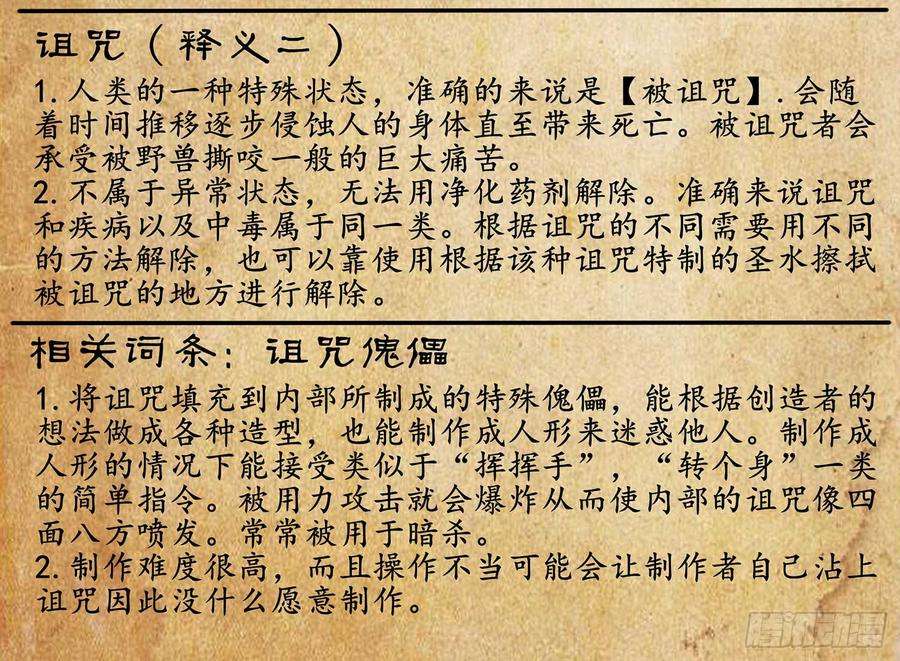 诅咒（释义二）
1.人类的一种特殊状态，准确的来说是【被诅咒】.会随
着时间推移逐步侵蚀人的身体直至带来死亡。被诅咒者会
承受被野兽撕咬一般的巨大痛苦。
2.不属于异常状态，无法用净化药剂解除。准确来说诅咒
和疾病以及中毒属于同一类。根据诅咒的不同需要用不同
的方法解除，也可以靠使用根据该种诅咒特制的圣水擦拭
被诅咒的地方进行解除。
相关词条：诅咒傀儡
1.将诅咒填充到内部所制成的特殊傀儡，能根据创造者的
想法做成各种造型，也能制作成人形来迷惑他人。制作成
人形的情况下能接受类似于“挥挥手”，“转个身”一类
的简单指令。被用力攻击就会爆炸从而使内部的诅咒像四
面八方喷发。常常被用于暗杀。
2.制作难度很高，而且操作不当可能会让制作者自己沾上
诅咒因此没什么愿意制作。
腾讯动漫